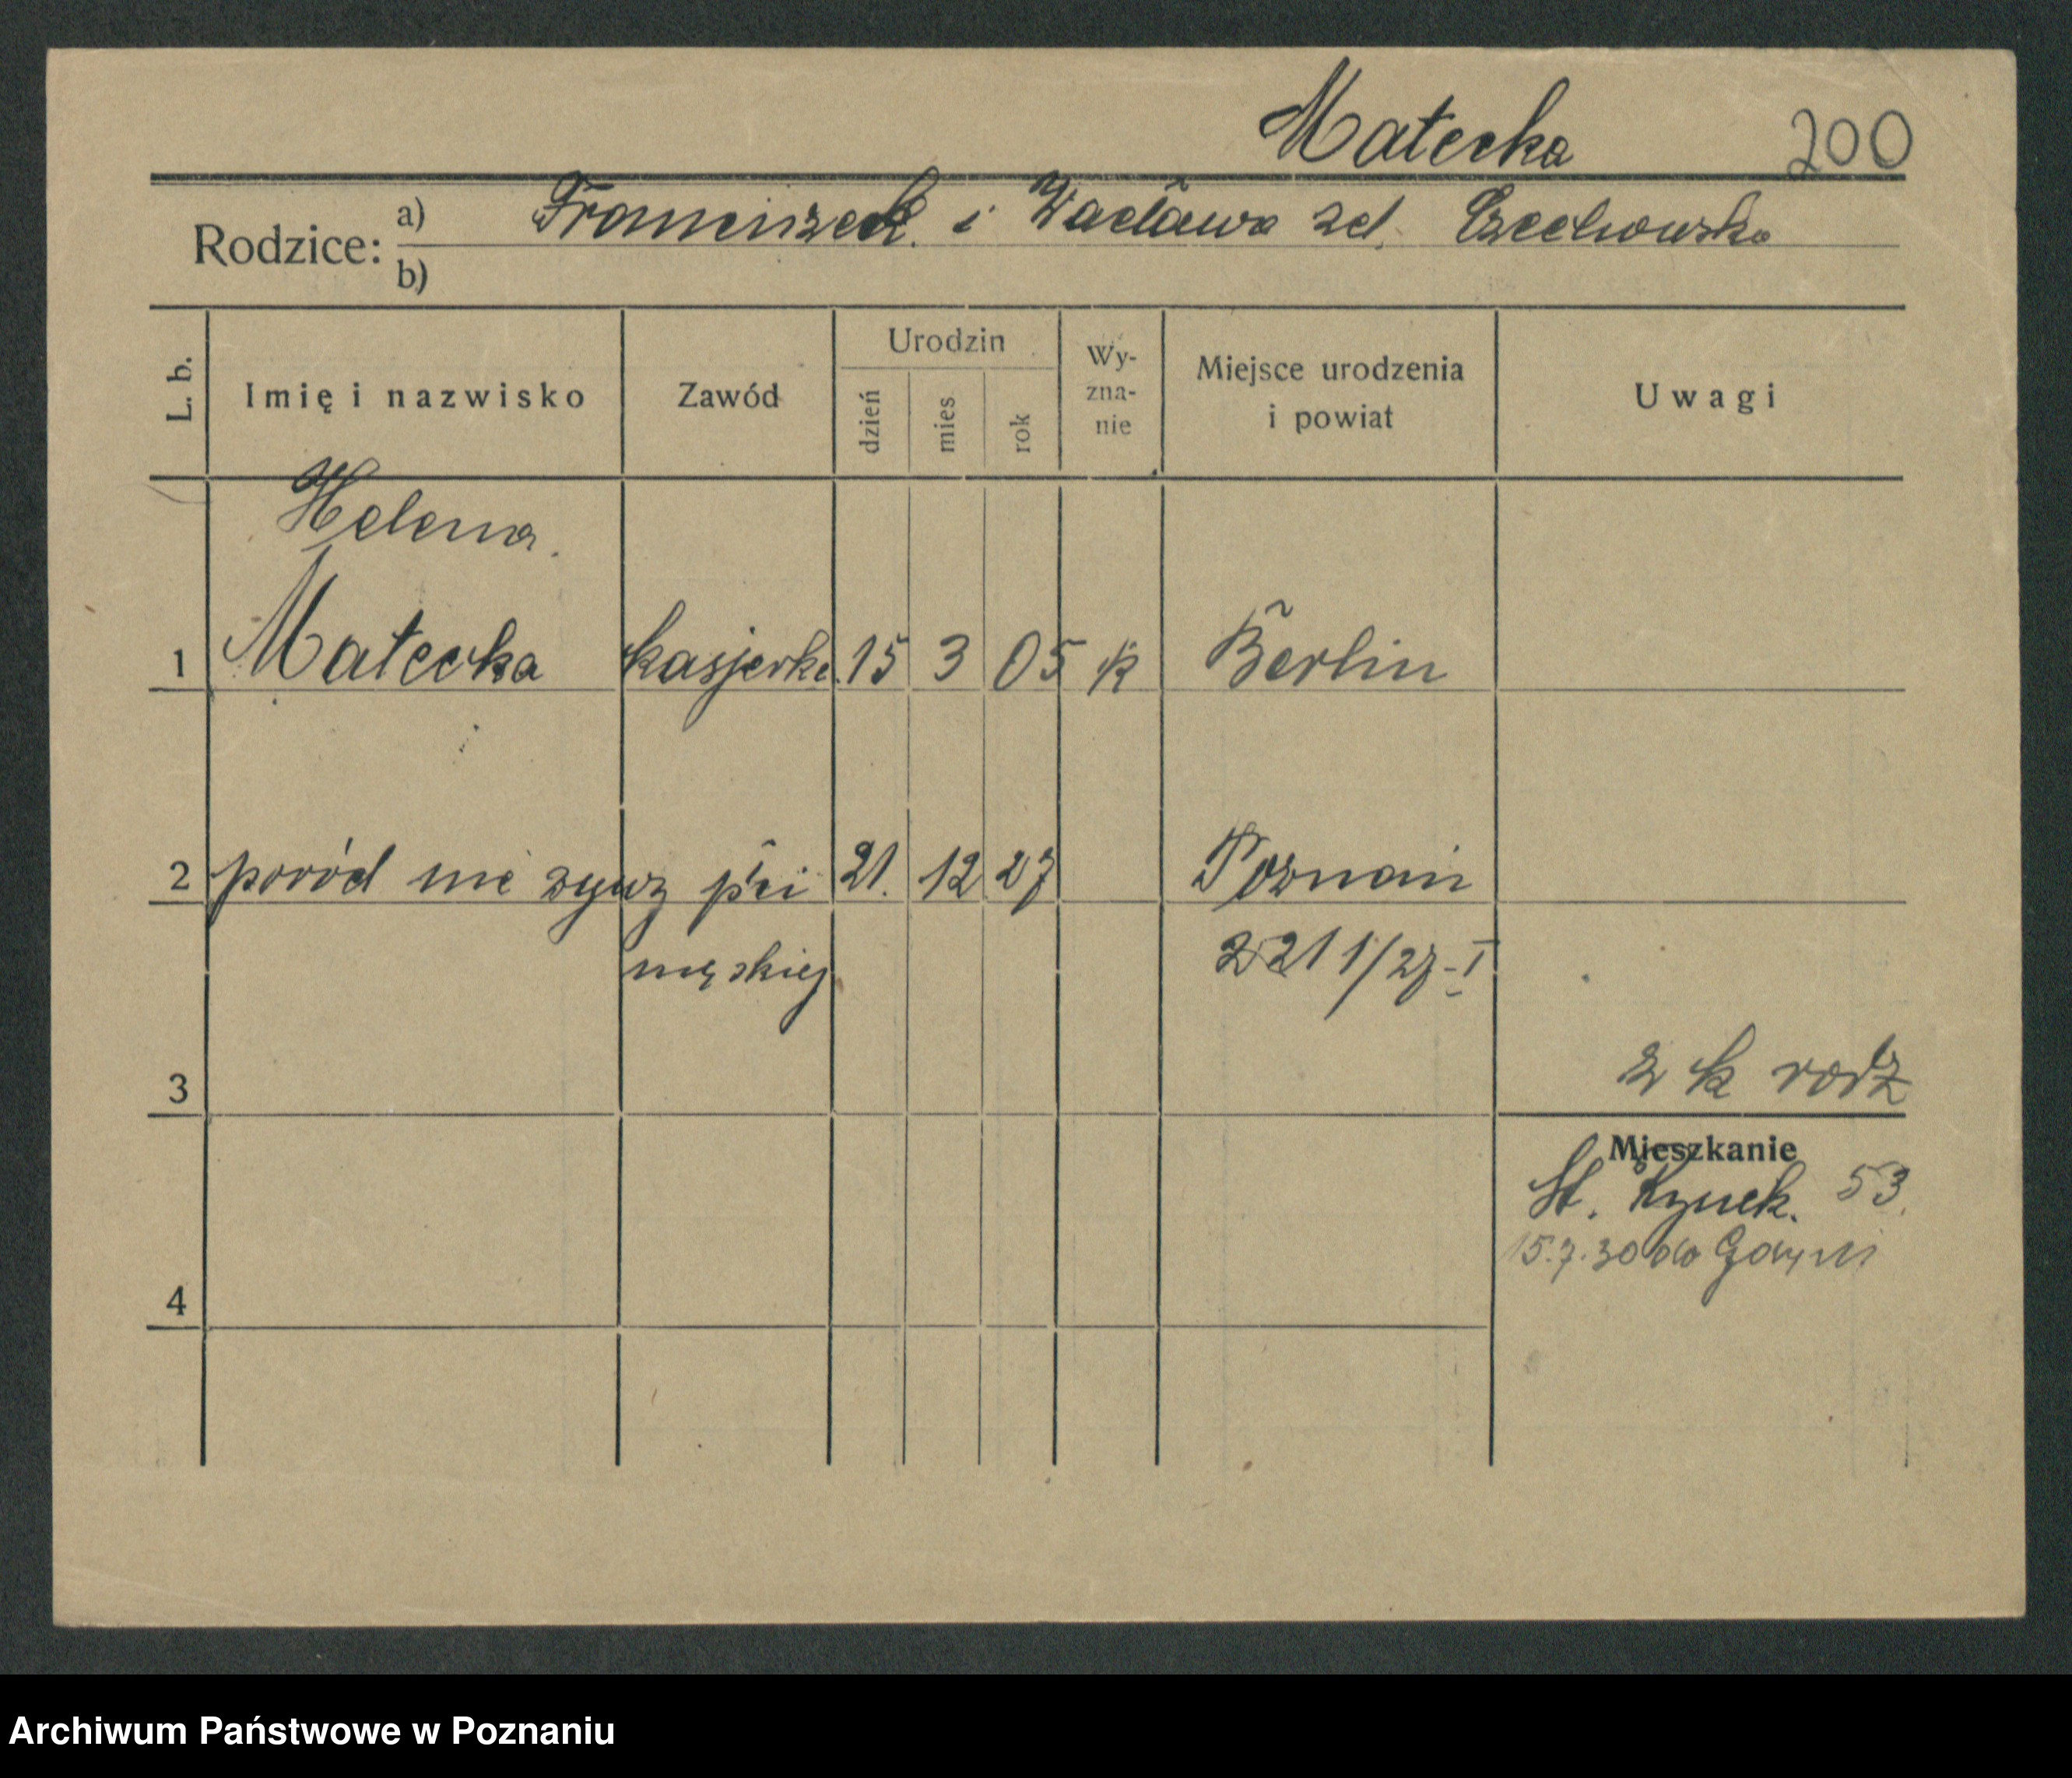 Małecka 200
Rodzice: a) Franciszek i Wacława zd. Czechowska
b)
L. b. Imię i nazwisko Zawód Urodzin dzień mies rok Wy-zna-nie Miejsce urodzenia i powiat Uwagi
Helena
1 Małecka kasjerka 15 3 05 k Berlin
2 poród nie żywy płci 21. 12 27 Poznań
męskiej 2211/27-I
3 z k rodz
Mieszkanie
St. Rynek. 53.
15.7.30 do Gdyni
4
Archiwum Państwowe w Poznaniu